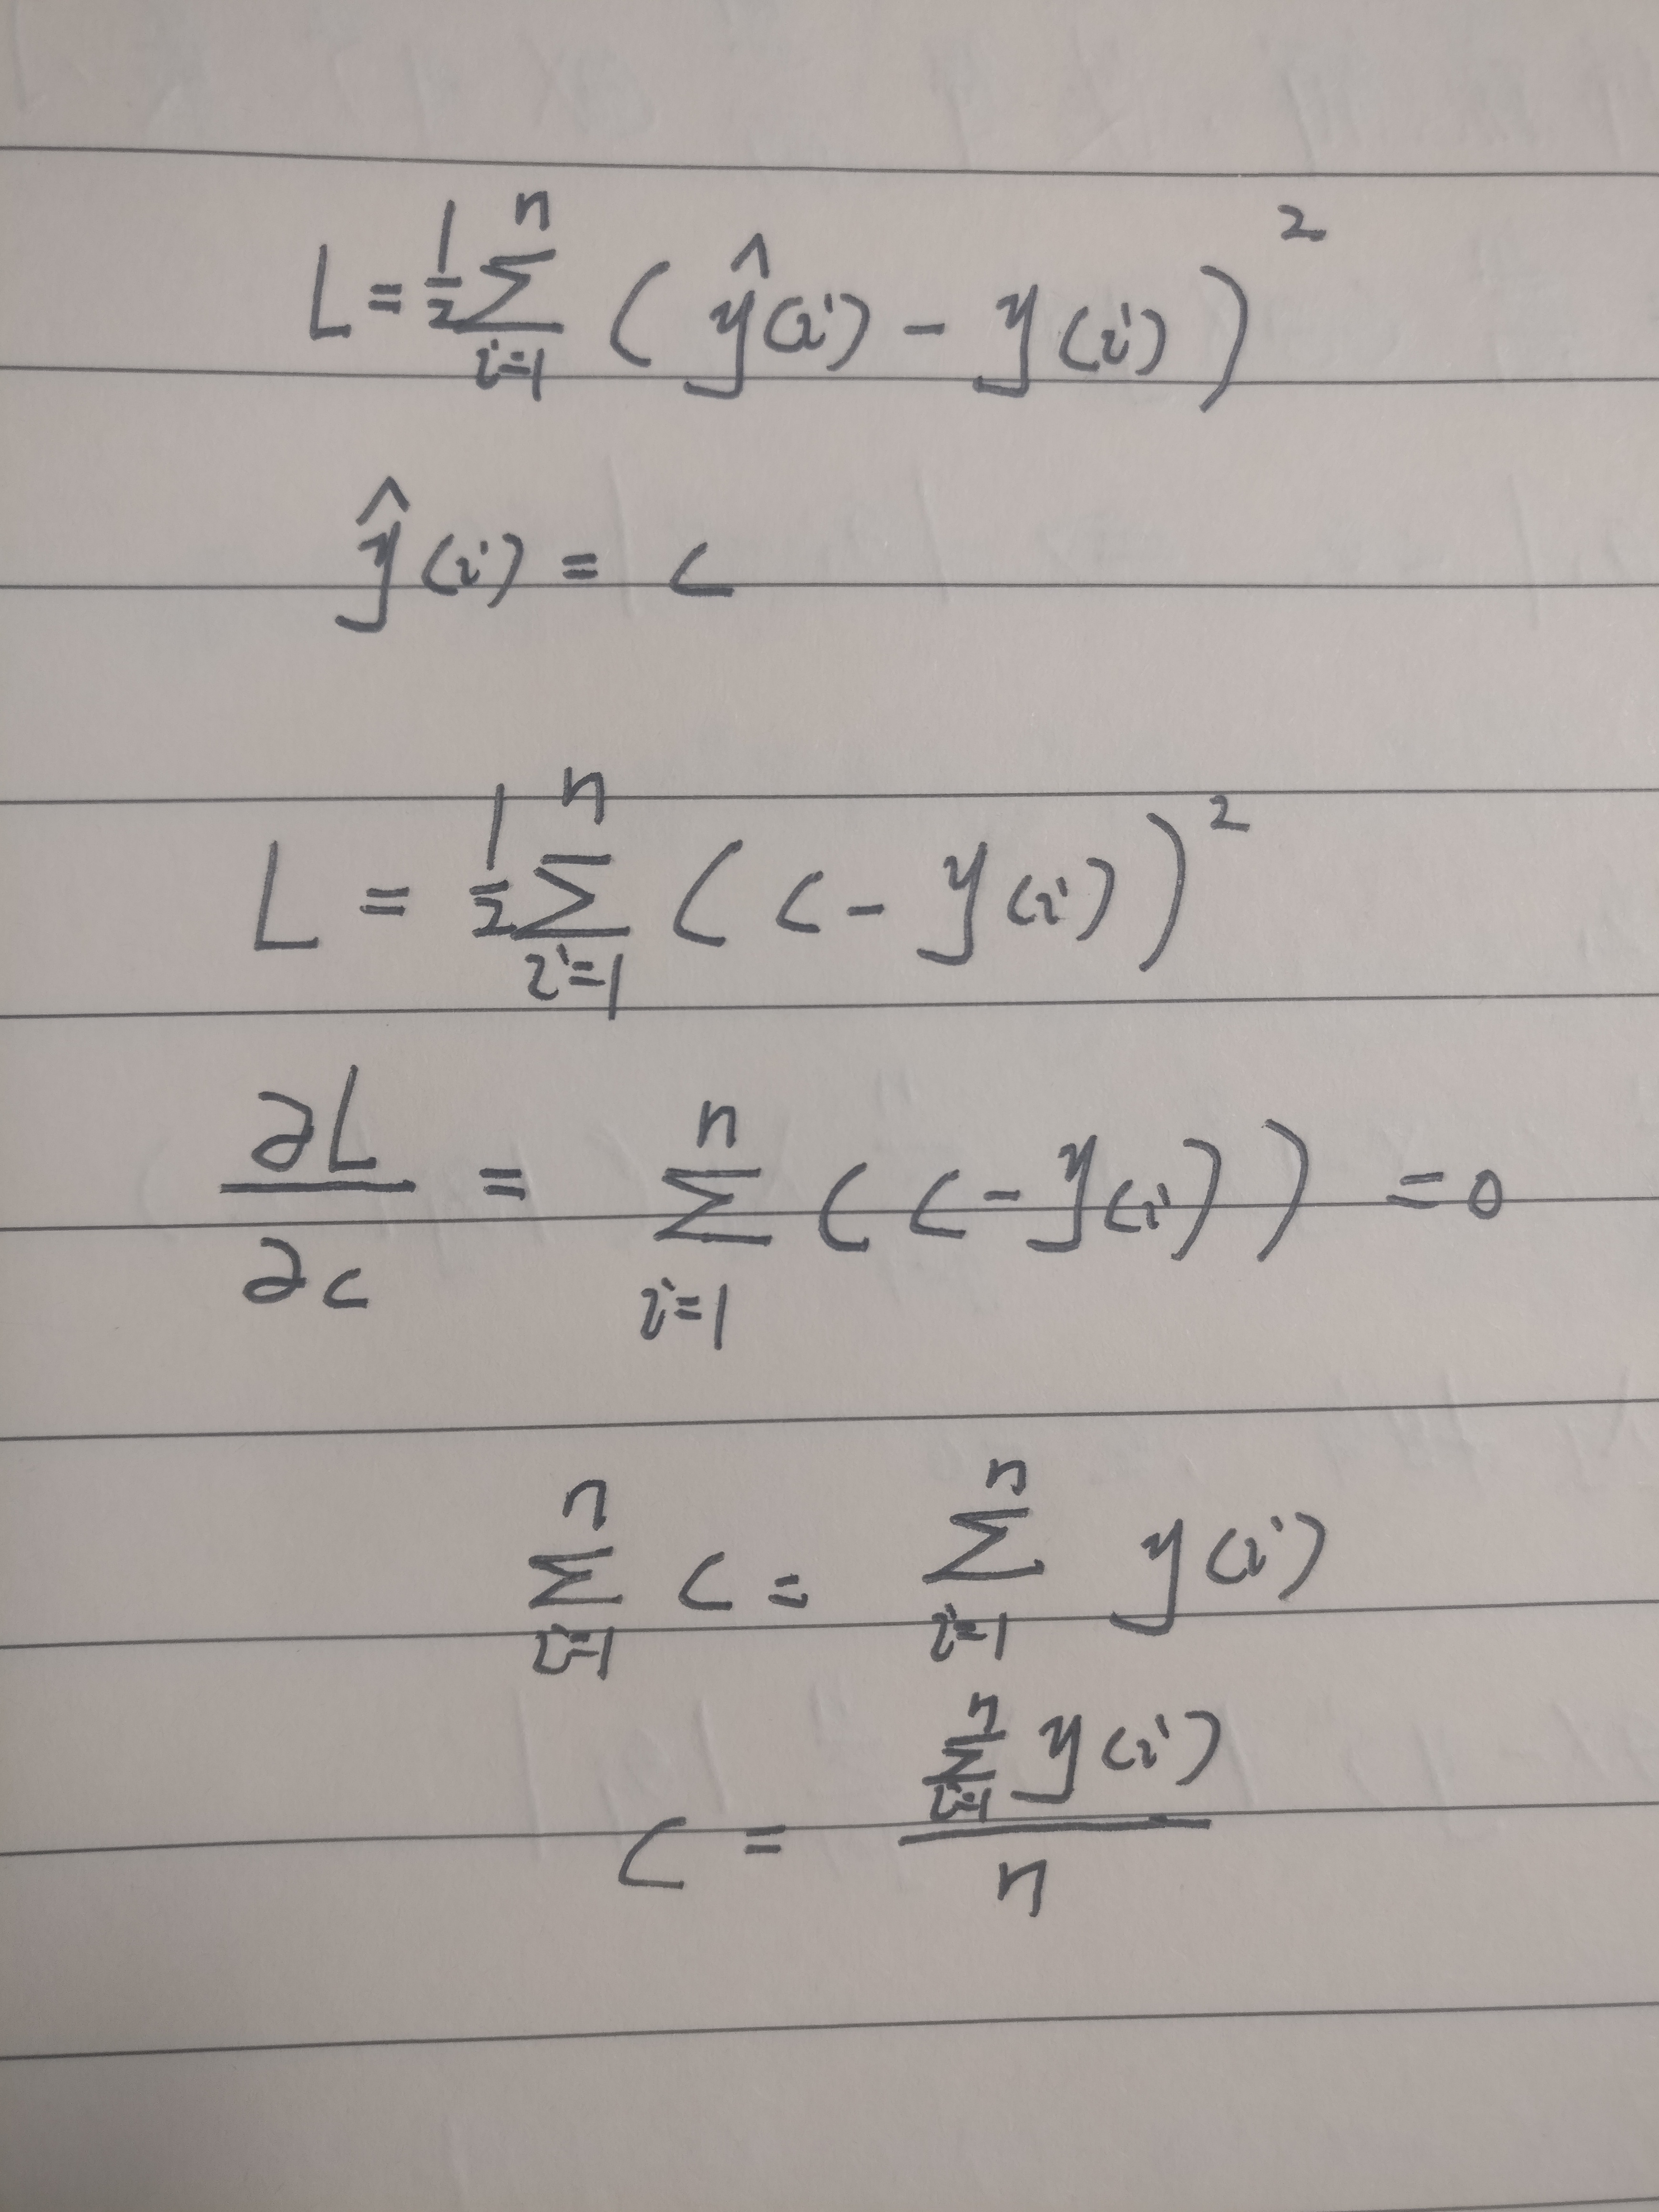 L = 1/2 ∑_{i=1}^{n} ( ŷ(i) - y(i) )²
ŷ(i) = c
L = 1/2 ∑_{i=1}^{n} ( c - y(i) )²
∂L/∂c = ∑_{i=1}^{n} ( c - y(i) ) = 0
∑_{i=1}^{n} c = ∑_{i=1}^{n} y(i)
c = ∑_{i=1}^{n} y(i) / n